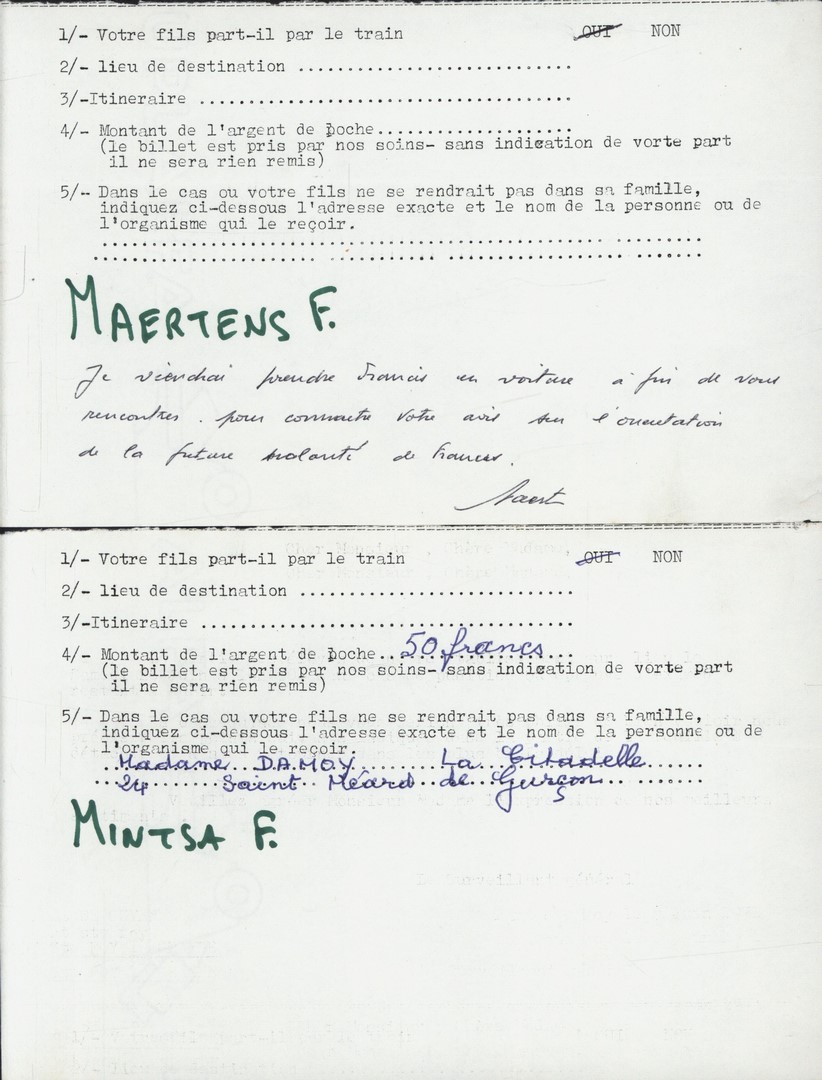 1/- Votre fils part-il par le train OUI NON
2/- lieu de destination ..............................
3/-Itineraire .........................................
4/- Montant de l'argent de poche.....................
(le billet est pris par nos soins- sans indication de vorte part
il ne sera rien remis)
5/- Dans le cas ou votre fils ne se rendrait pas dans sa famille,
indiquez ci-dessous l'adresse exacte et le nom de la personne ou de
l'organisme qui le reçoir.
MAERTENS F.
Je viendrai prendre Francis en voiture à fin de vous
rencontrer. pour connaitre votre avis sur l'orientation
de la future scolarité de Francis.
1/- Votre fils part-il par le train OUI NON
2/- lieu de destination ..............................
3/-Itineraire .........................................
4/- Montant de l'argent de poche.. 50 francs...
(le billet est pris par nos soins- sans indication de vorte part
il ne sera rien remis)
5/- Dans le cas ou votre fils ne se rendrait pas dans sa famille,
indiquez ci-dessous l'adresse exacte et le nom de la personne ou de
l'organisme qui le reçoir.
Madame DAMOY La Citadelle
24 Saint Méard de Gurçon
MINTSA F.